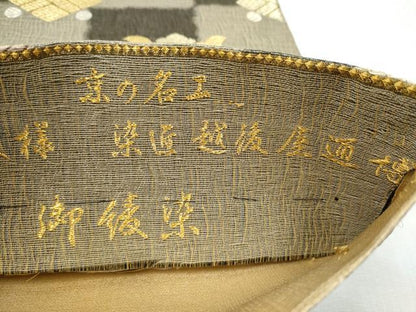 京の名工
様 染匠 越後屋通
御後染